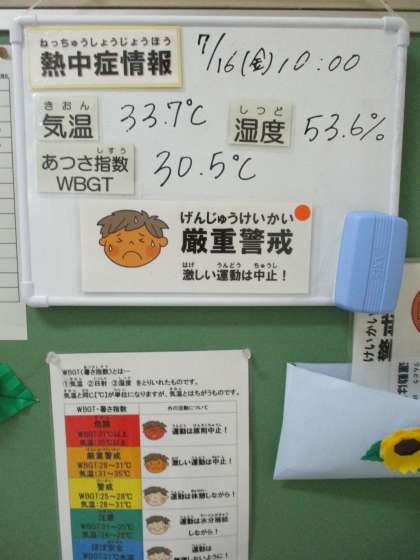 ねっちゅうしょうじょうほう
熱中症情報
7/16(金)10:00
きおん
気温
33.7℃
しつど
湿度
53.6%
あつさ指数
しすう
WBGT
30.5℃
げんじゅうけいかい
厳重警戒
はげ うんどう ちゅうし
激しい運動は中止!
WBGT(暑さ指数)とは…
①気温 ②日射 ③湿度 をとりいれたものです。
気温と同じ[℃]が単位になりますが、気温とはちがうものです。
WBGT・暑さ指数
外の活動について
危険
WBGT:31℃以上
気温:35℃以上
運動は原則中止!
厳重警戒
WBGT:28~31℃
気温:31~35℃
激しい運動は中止!
警戒
WBGT:25~28℃
気温:28~31℃
運動は休憩しながら!
注意
運動は水分補給
しながら!
ほぼ安全
運動は
けいかい
警戒